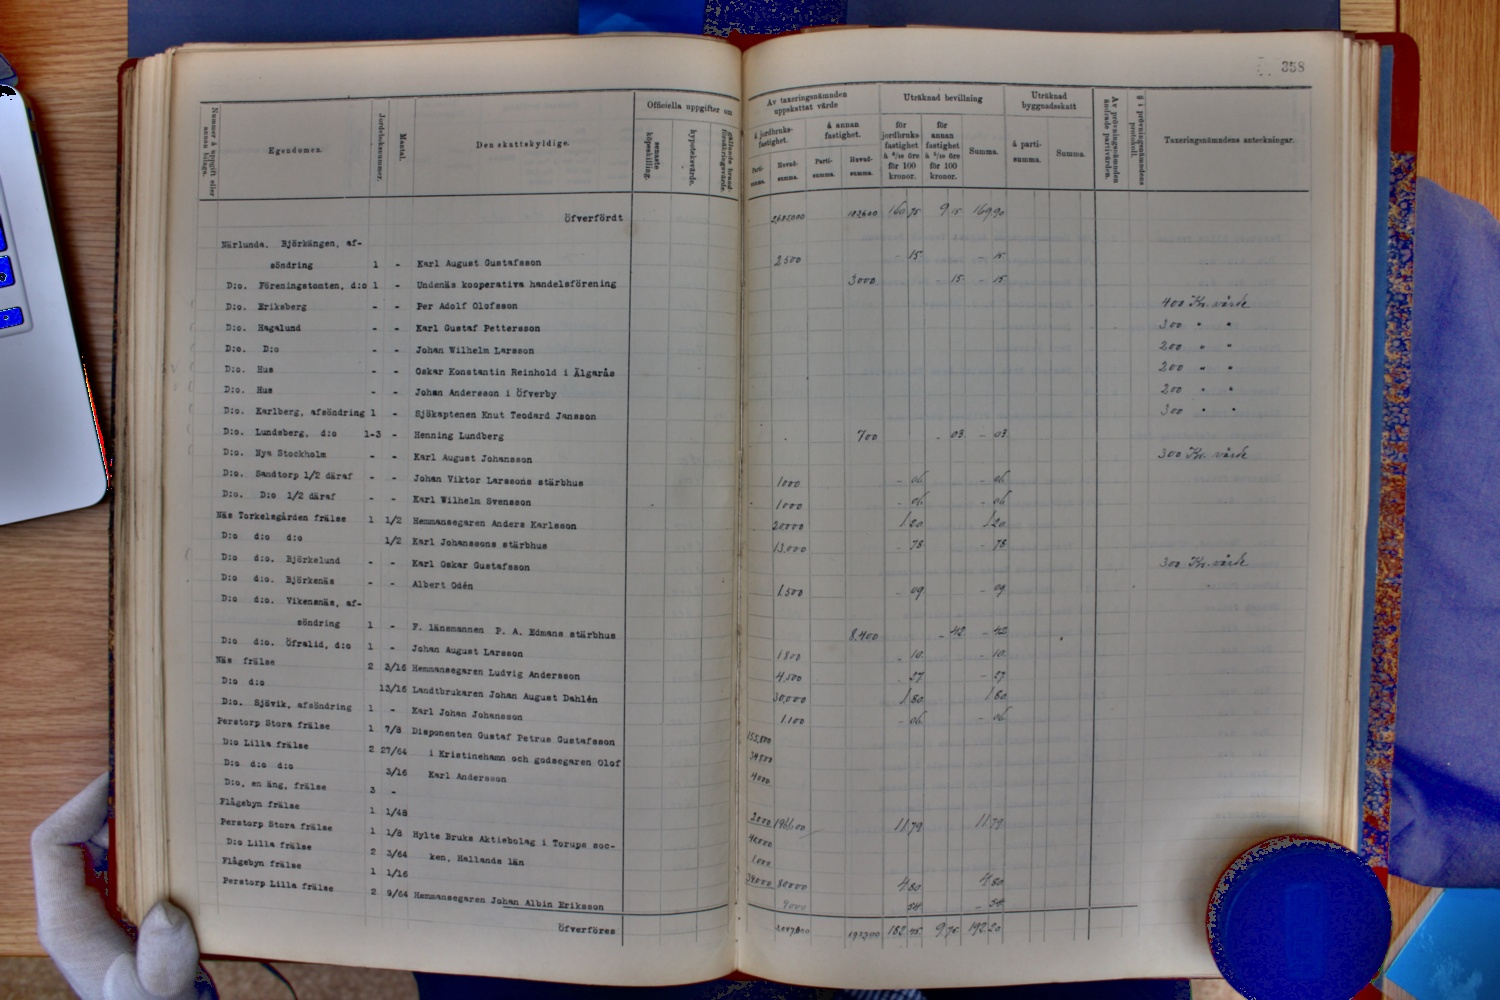 358
Nummer å uppgift eller annan bilaga.
Egendomen.
Jordeboknummer.
Mantal.
Den skattskyldige.
Officiella uppgifter om
senaste köpeskilling.
hypoteksvärde.
gällande brandförsäkringsvärde.
Av taxeringsnämnden uppskattat värde
å jordbruksfastighet.
å annan fastighet.
Partisumma.
Huvudsumma.
Partisumma.
Huvudsumma.
Uträknad bevillning
för jordbruksfastighet à 6/10 öre för 100 kronor.
för annan fastighet à 5/10 öre för 100 kronor.
Summa.
Uträknad byggnadsskatt
à partisumma.
Summa.
Av prövningsnämnden ändrade partivärden.
§ i prövningsnämndens protokoll.
Taxeringsnämndens anteckningar.
Öfverfördt 183600 160 75 9 15 169 90
Närlunda. Björkängen, af-
söndring 1 - Karl August Gustafsson 2500 - 15 - 15
D:o. Föreningstomten, d:o 1 - Undenäs kooperativa handelsförening 3000 - 15 - 15
D:o. Eriksberg - - Per Adolf Olofsson 400 Kr. värde
D:o. Hagalund - - Karl Gustaf Pettersson 300 " "
D:o. D:o - - Johan Wilhelm Larsson 200 " "
D:o. Hus - - Oskar Konstantin Reinhold i Älgarås 200 " "
D:o. Hus - - Johan Andersson i Öfverby 200 " "
D:o. Karlberg, afsöndring 1 - Sjökaptenen Knut Teodard Jansson 300 " "
D:o. Lundsberg, d:o 1-3 - Henning Lundberg 700 - 03 - 03
D:o. Nya Stockholm - - Karl August Johansson 300 Kr. värde
D:o. Sandtorp 1/2 däraf - - Johan Viktor Larssons stärbhus 1000 - 06 - 06
D:o. D:o 1/2 däraf - - Karl Wilhelm Svensson 1000 - 06 - 06
Näs Torkelsgården frälse 1 1/2 Hemmansegaren Anders Karlsson 20000 1 20 1 20
D:o d:o d:o 1/2 Karl Johanssons stärbhus 13.000 - 78 - 78
D:o d:o. Björkelund - - Karl Oskar Gustafsson 300 Kr. värde
D:o d:o. Björkenäs - - Albert Odén 1.500 - 09 - 09
D:o d:o. Vikensnäs, af-
söndring 1 - F. länsmannen P. A. Edmans stärbhus 8.400 - 42 - 42
D:o d:o. Öfralid, d:o 1 - Johan August Larsson 1800 - 10 - 10
Näs frälse 2 3/16 Hemmansegaren Ludvig Andersson 4.500 - 27 - 27
D:o d:o 13/16 Landtbrukaren Johan August Dahlén 30,000 1 80 1 80
D:o. Sjövik, afsöndring 1 - Karl Johan Johansson 1.100 - 06 - 06
Perstorp Stora frälse 1 7/8 Disponenten Gustaf Petrus Gustafsson 155,800
D:o Lilla frälse 2 27/64 i Kristinehamn och godsegaren Olof
D:o d:o d:o 3/16 Karl Andersson 4000
D:o, en äng, frälse 3 -
Flågebyn frälse 1 1/48 2000 196600 11 79 11 79
Perstorp Stora frälse 1 1/8 Hylte Bruks Aktiebolag i Torups soc-
D:o Lilla frälse 2 3/64 ken, Hallands län 1.000
Flågebyn frälse 1 1/16 80000 4 80 4 80
Perstorp Lilla frälse 2 9/64 Hemmansegaren Johan Albin Eriksson 9000 54 - 54
Öfverföres 182 45 9 75 192 20